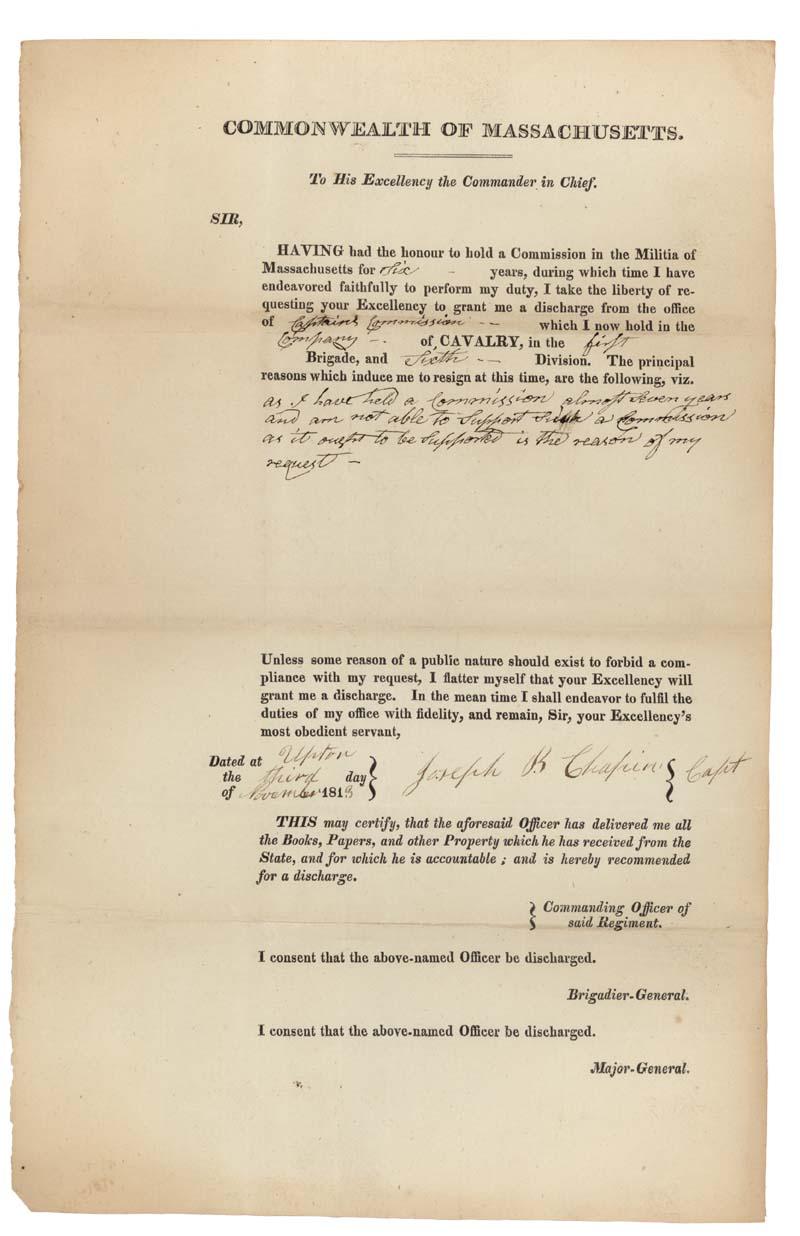 COMMONWEALTH OF MASSACHUSETTS.
To His Excellency the Commander in Chief.
SIR,
HAVING had the honour to hold a Commission in the Militia of
Massachusetts for Six - years, during which time I have
endeavored faithfully to perform my duty, I take the liberty of re-
questing your Excellency to grant me a discharge from the office
of Captains Commission -- which I now hold in the
Company -. of CAVALRY, in the first
Brigade, and Sixth -- Division. The principal
reasons which induce me to resign at this time, are the following, viz.
as I have held a Commission almost seven years
and am not able to Support Such a Commission
as it ought to be Supported is the reason of my
request -
Unless some reason of a public nature should exist to forbid a com-
pliance with my request, I flatter myself that your Excellency will
grant me a discharge. In the mean time I shall endeavor to fulfil the
duties of my office with fidelity, and remain, Sir, your Excellency's
most obedient servant,
Dated at Upton
the third day
of November 1813
Joseph B Chapin } Capt
THIS may certify, that the aforesaid Officer has delivered me all
the Books, Papers, and other Property which he has received from the
State, and for which he is accountable ; and is hereby recommended
for a discharge.
Commanding Officer of
said Regiment.
I consent that the above-named Officer be discharged.
Brigadier-General.
I consent that the above-named Officer be discharged.
Major-General.